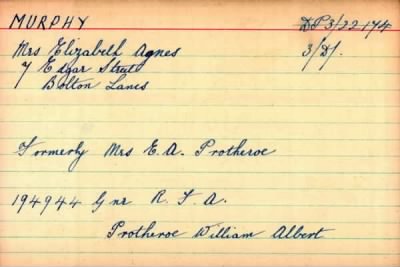 MURPHY DP3/22174
Mrs Elizabeth Agnes 3/D/.
7 Edgar Street
Bolton Lancs
Formerly Mrs E. A. Protheroe
194944 Gnr R. F. A.
Protheroe William Albert